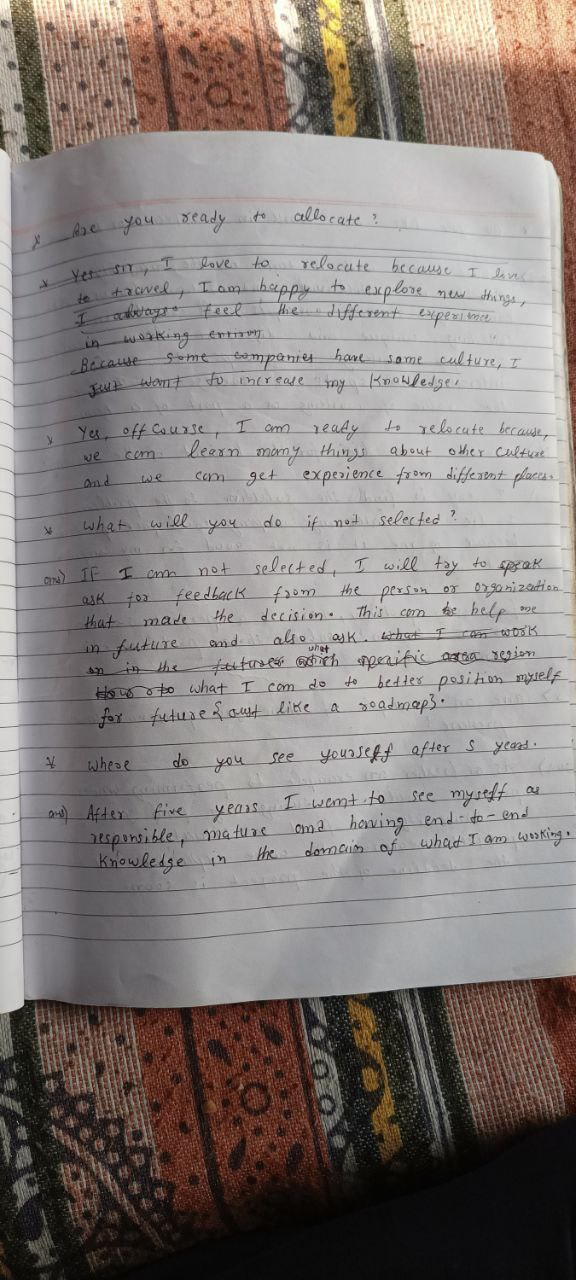 * Are you ready to allocate?
* Yes sir, I love to relocate because I love
to travel, I am happy to explore new things,
I always feel the different experience
in working
Because some companies have same culture, I
Just want to increase my knowledge.
* Yes, off course, I am ready to relocate because,
we can learn many things about other culture
and we can get experience from different places.
* What will you do if not selected?
ans) If I am not selected, I will try to speak
ask for feedback from the person or organization
that made the decision. This can be help me
in future and also ask. what I can work
what
on in the future which specific area region
How to what I can do to better position myself
for future {Just like a roadmap}.
* Where do you see yourself after 5 years.
ans) After five years I want to see myself as
responsible, mature and having end-to-end
knowledge in the domain of what I am working.